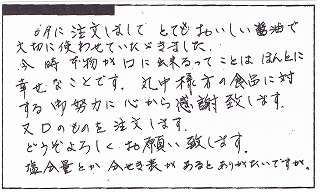 6月に注文しまして とてもおいしい醤油で
大切に使わせていただきました.
今時 本物が口に出来るってことはほんとに
幸せなことです. 丸中様方の食品に対
する御努力に心から感謝致します.
又口のものを注文します.
どうぞよろしくお願い致します.
塩分量とか 分せき表があるとありがたいですが。